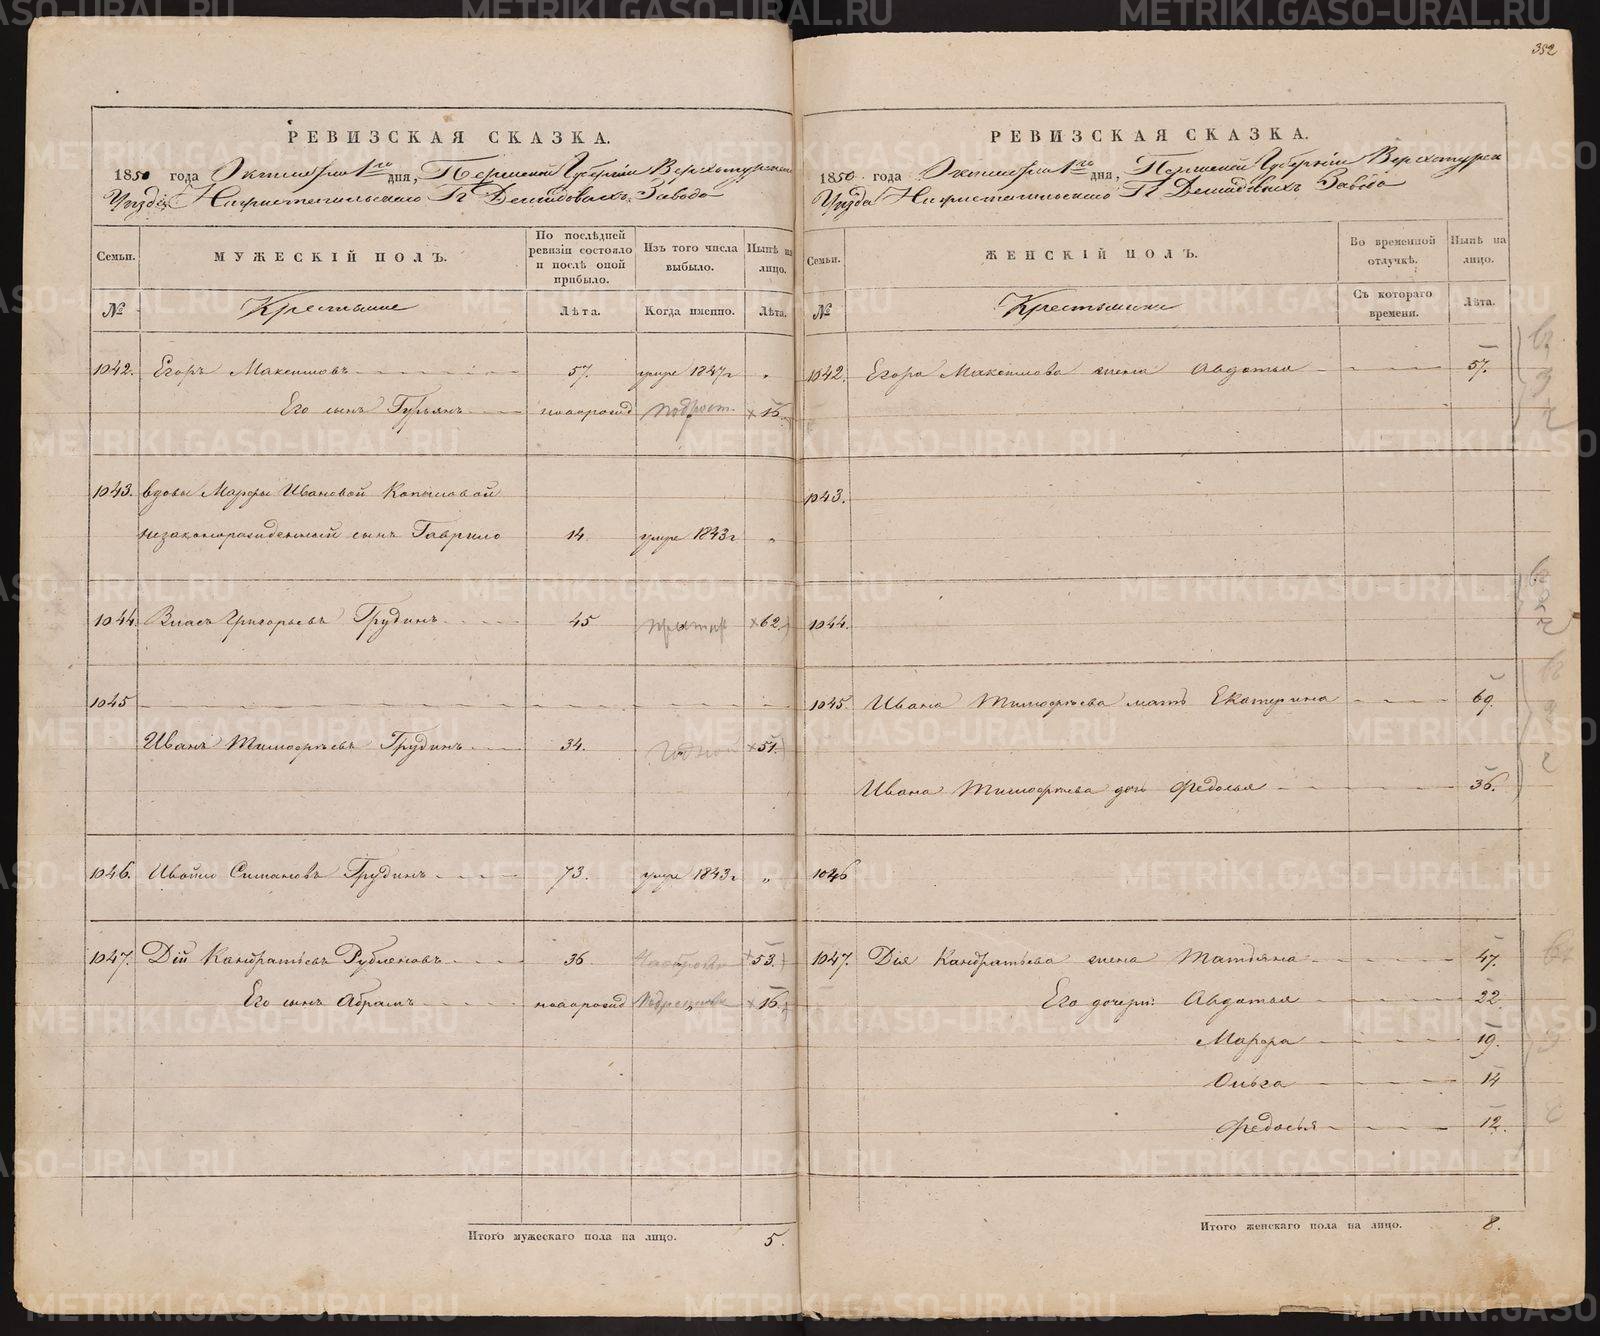 352
РЕВИЗСКАЯ СКАЗКА.
1850 года Октября 1го дня, Пермской Губерніи Верхотурскаго
Уѣзда Нижнетагильскаго Гг Демидовыхъ Завода
Семьи.
МУЖЕСКІЙ ПОЛЪ.
По послѣдней ревизіи состояло и послѣ оной прибыло.
Изъ того числа выбыло.
Нынѣ на лицо.
№
Крестьяне
Лѣта.
Когда именно.
Лѣта.
1042. Егоръ Максимовъ 57. умре 1847г „
Его сынъ Гурьянъ новорожд подрост. 16.
1043. вдовы Марфы Ивановой Копыловой
незаконорожденный сынъ Гаврило 14. умре 1843г „
1044. Власъ Григорьевъ Грудинъ 45 62.
1045
Иванъ Тимофѣевъ Грудинъ 34. годной 51.
1046. Ивойло Симановъ Грудинъ 73. умре 1843г „
1047. Дій Кандратьевъ Рублевовъ 36. 53.
Его сынъ Абрамъ новорожд 16.
Итого мужескаго пола на лицо. 5.
РЕВИЗСКАЯ СКАЗКА.
1850 года Октября 1го дня, Пермской Губерніи Верхотурска
Уѣзда Нижнетагильскаго Гг Демидовыхъ Завода
Семьи.
ЖЕНСКІЙ ПОЛЪ.
Во временной отлучкѣ.
Нынѣ на лицо.
№
Крестьянки
Съ котораго времени.
Лѣта.
1042. Егора Максимова жена Авдотья 57.
1043.
1044.
1045. Ивана Тимофѣева мать Екатерина 69.
Ивана Тимофѣева дочь Федосья 36.
1046
1047. Дія Кандратьева жена Татьяна 47.
Его дочери: Авдотья 22.
Марфа 19.
Ольга 14
Федосья 12.
Итого женскаго пола на лицо. 8.
METRIKI.GASO-URAL.RU